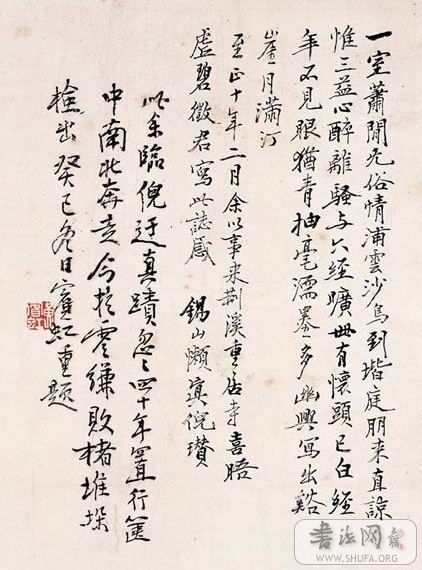 一室蕭閒无俗情浦雲沙鳥到堦庭朋来直諒
惟三益心醉離騷与六经曠世有懷頭已白经
年不見眼猶青抽毫濡墨多幽興寫出谿
崖月滿汀
至正十年二月余以事来荆溪重居寺喜晤
虛碧徵君寫此誌感 錫山懶真倪瓚
此余臨倪迂真蹟忽〻四十年置行箧
中南北奔走今於零縑敗楮堆垛
檢出癸巳冬日賓虹重題
書法网
WWW.SHUFA.ORG